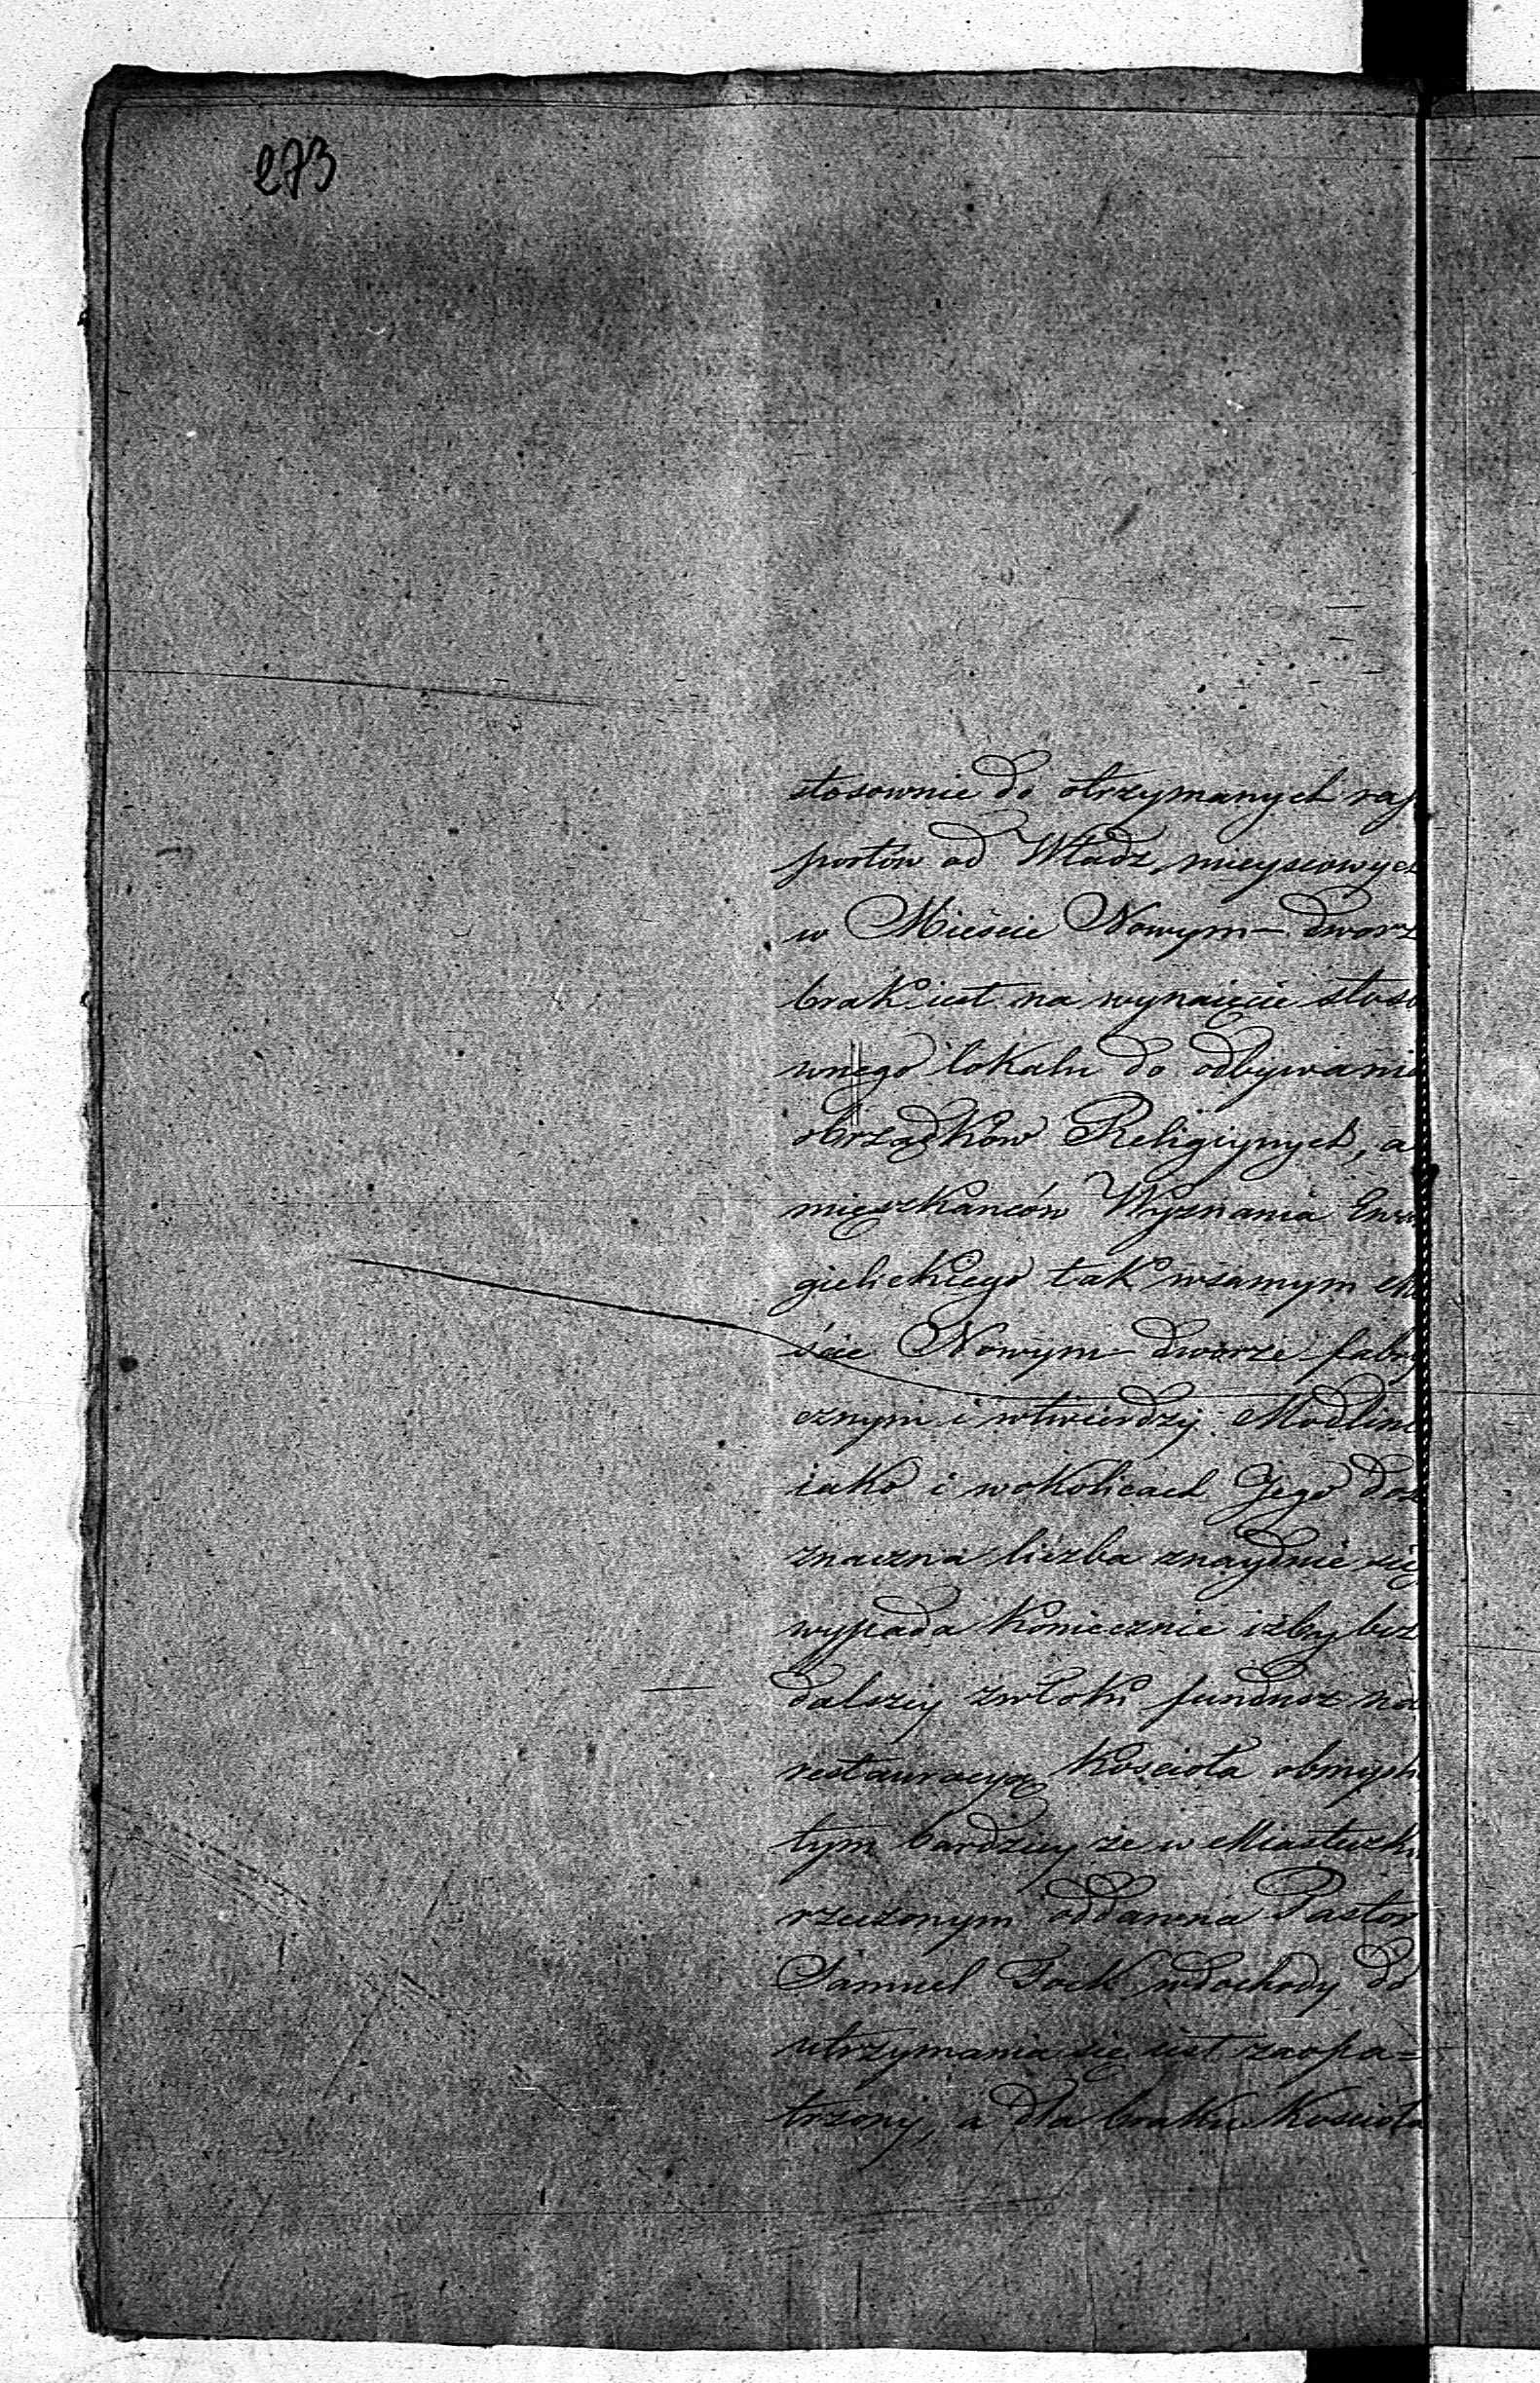 273
stosownie do otrzymanych rap
portow od Władz mieyscowych
w Mieście Nowym-dworz
brak iest na wynaięcie stoso
wnego lokalu do odbywania
obrządków Religiynych, a
mieszkanców Wyznania Ewa
gielickiego tak wsamym Mie
ście Nowym-dworze fabry
cznym i wtwierdzy Modlinie
iako i wokolicach Jego dość
znaczna liczba znayduie się
wypada koniecznie iżby bez
dalszey zwłoki fundusz na
restauracyą Kościoła obmyśl
tym bardziey że w Miasteczku
rzeczonym oddawna Pastor
Samuel Jock wdochody do
utrzymania się iest zaopa=
trzony, a dla braku Kościoła